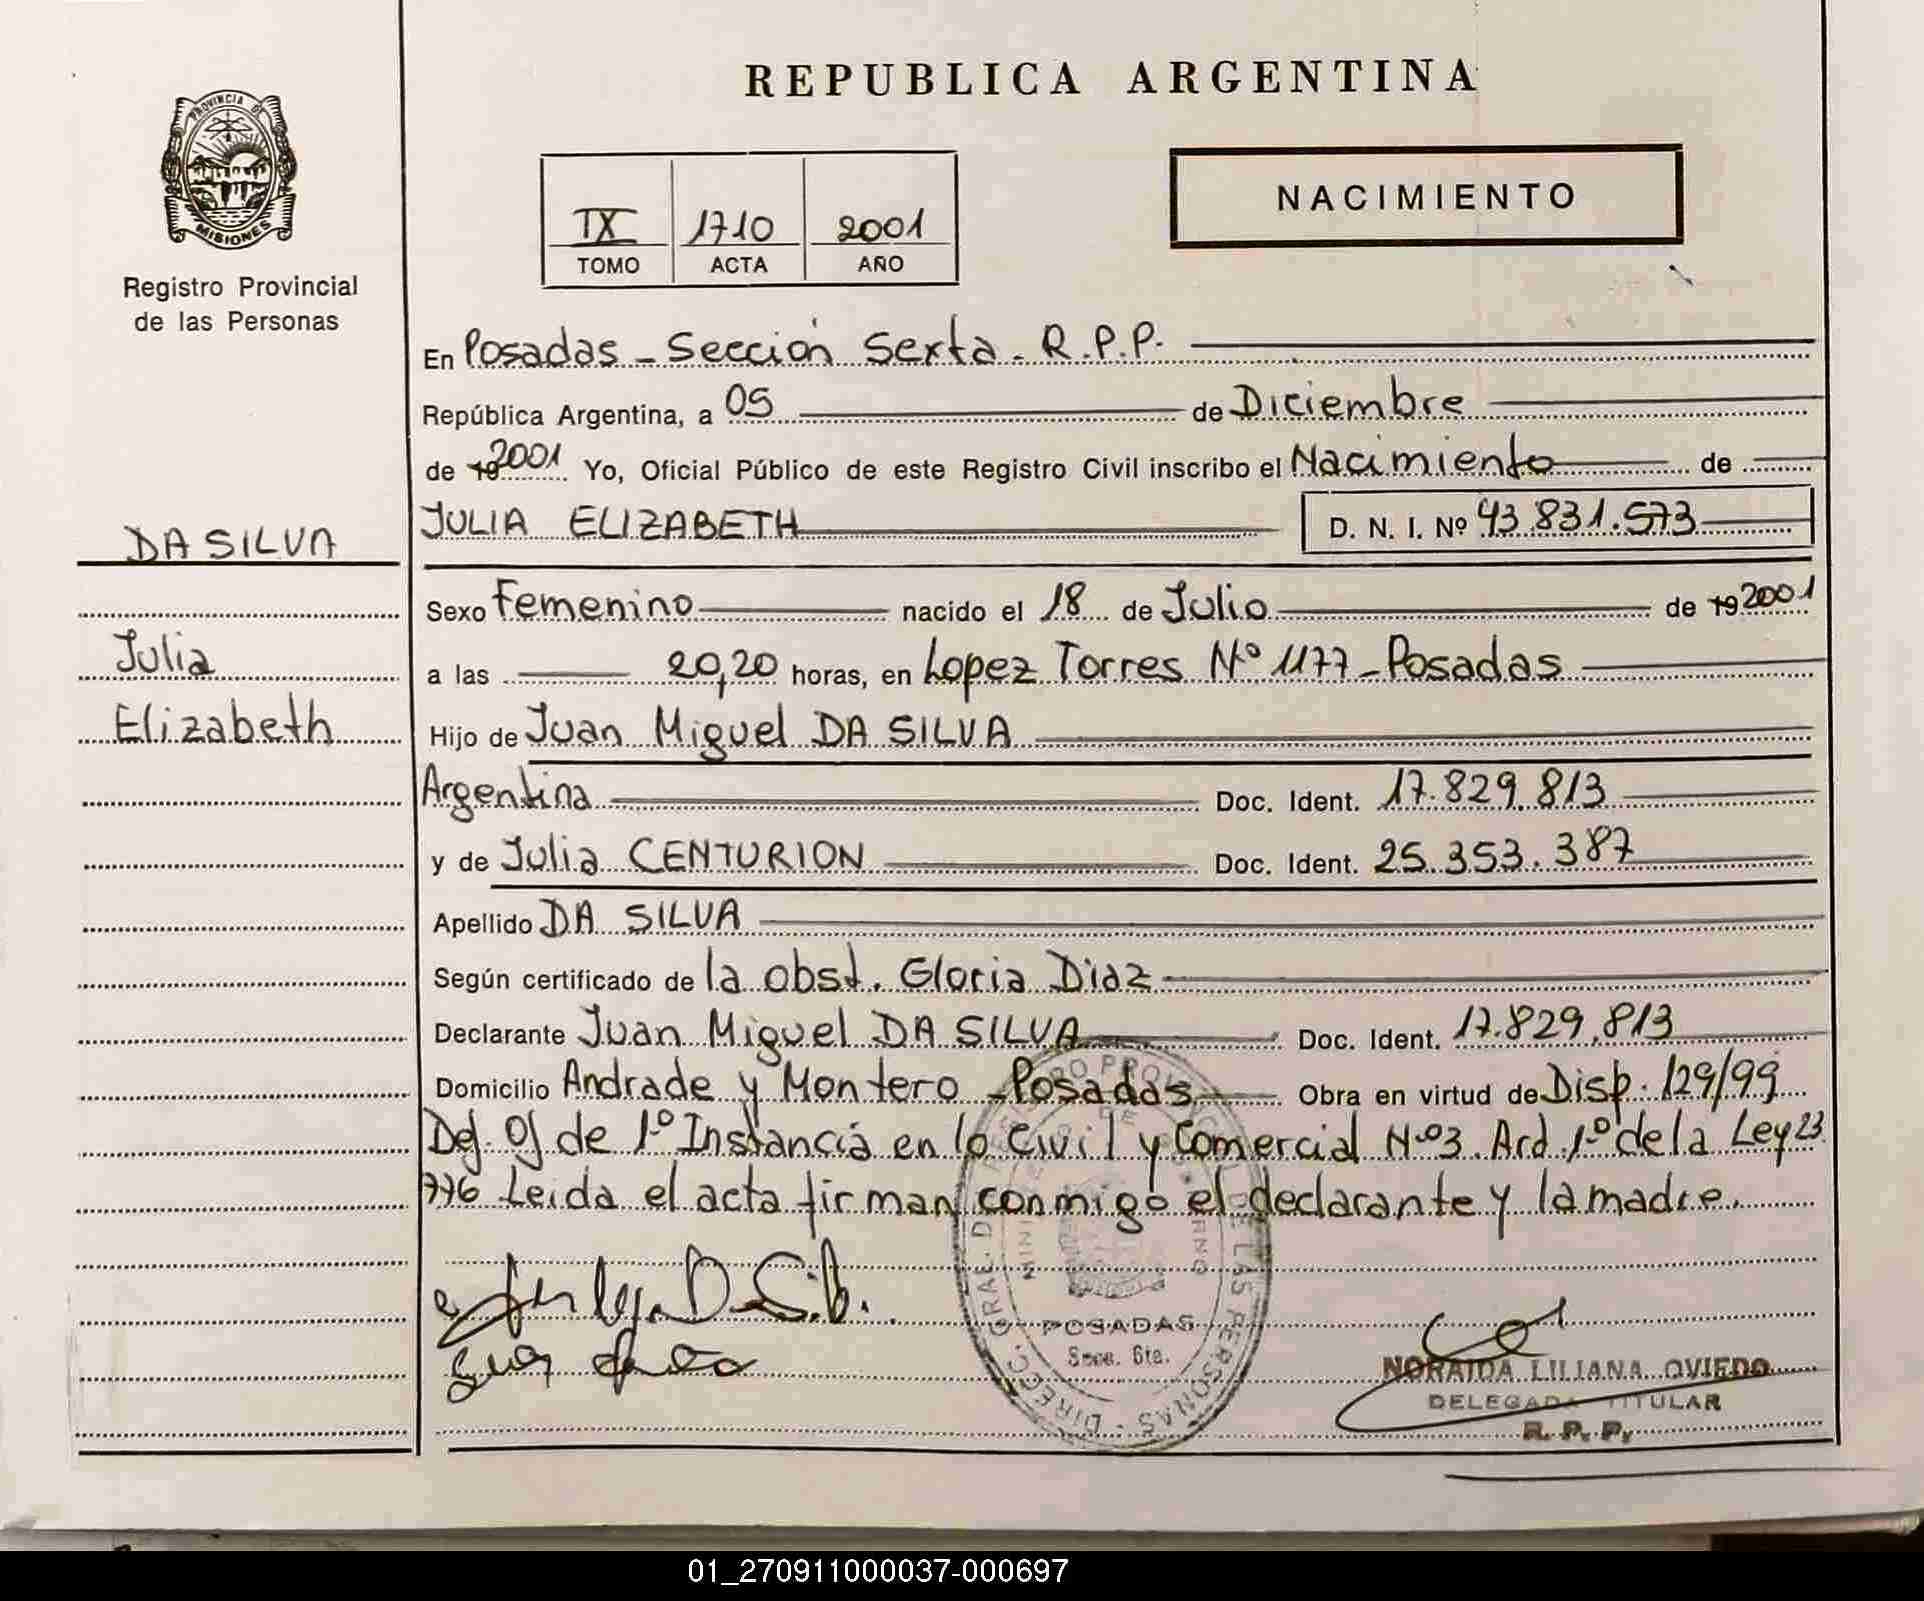 REPUBLICA ARGENTINA
PROVINCIA DE
MISIONES
Registro Provincial
de las Personas
IX 1710 2001
TOMO ACTA AÑO
NACIMIENTO
En Posadas - Sección Sexta - R.P.P.
República Argentina, a 05 de Diciembre
de 19 2001 Yo, Oficial Público de este Registro Civil inscribo el Nacimiento de
DA SILVA
JULIA ELIZABETH D. N. I. Nº 43.831.573
Sexo Femenino nacido el 18 de Julio de 19 2001
Julia
a las 20,20 horas, en Lopez Torres Nº 1177 - Posadas
Elizabeth
Hijo de Juan Miguel DA SILVA
Argentina Doc. Ident. 17.829.813
y de Julia CENTURION Doc. Ident. 25.353.387
Apellido DA SILVA
Según certificado de la obst. Gloria Diaz
Declarante Juan Miguel DA SILVA Doc. Ident. 17.829.813
Domicilio Andrade y Montero - Posadas Obra en virtud de Disp. 129/99
de 1º Instancia en lo Civil y Comercial Nº 3. Art 1º de la Ley 23
776 Leida el acta firman conmigo el declarante y la madre.
POSADAS
Secc. 6ta.
NORAIDA LILIANA OVIEDO
DELEGADA TITULAR
R. P. P.
01_270911000037-000697